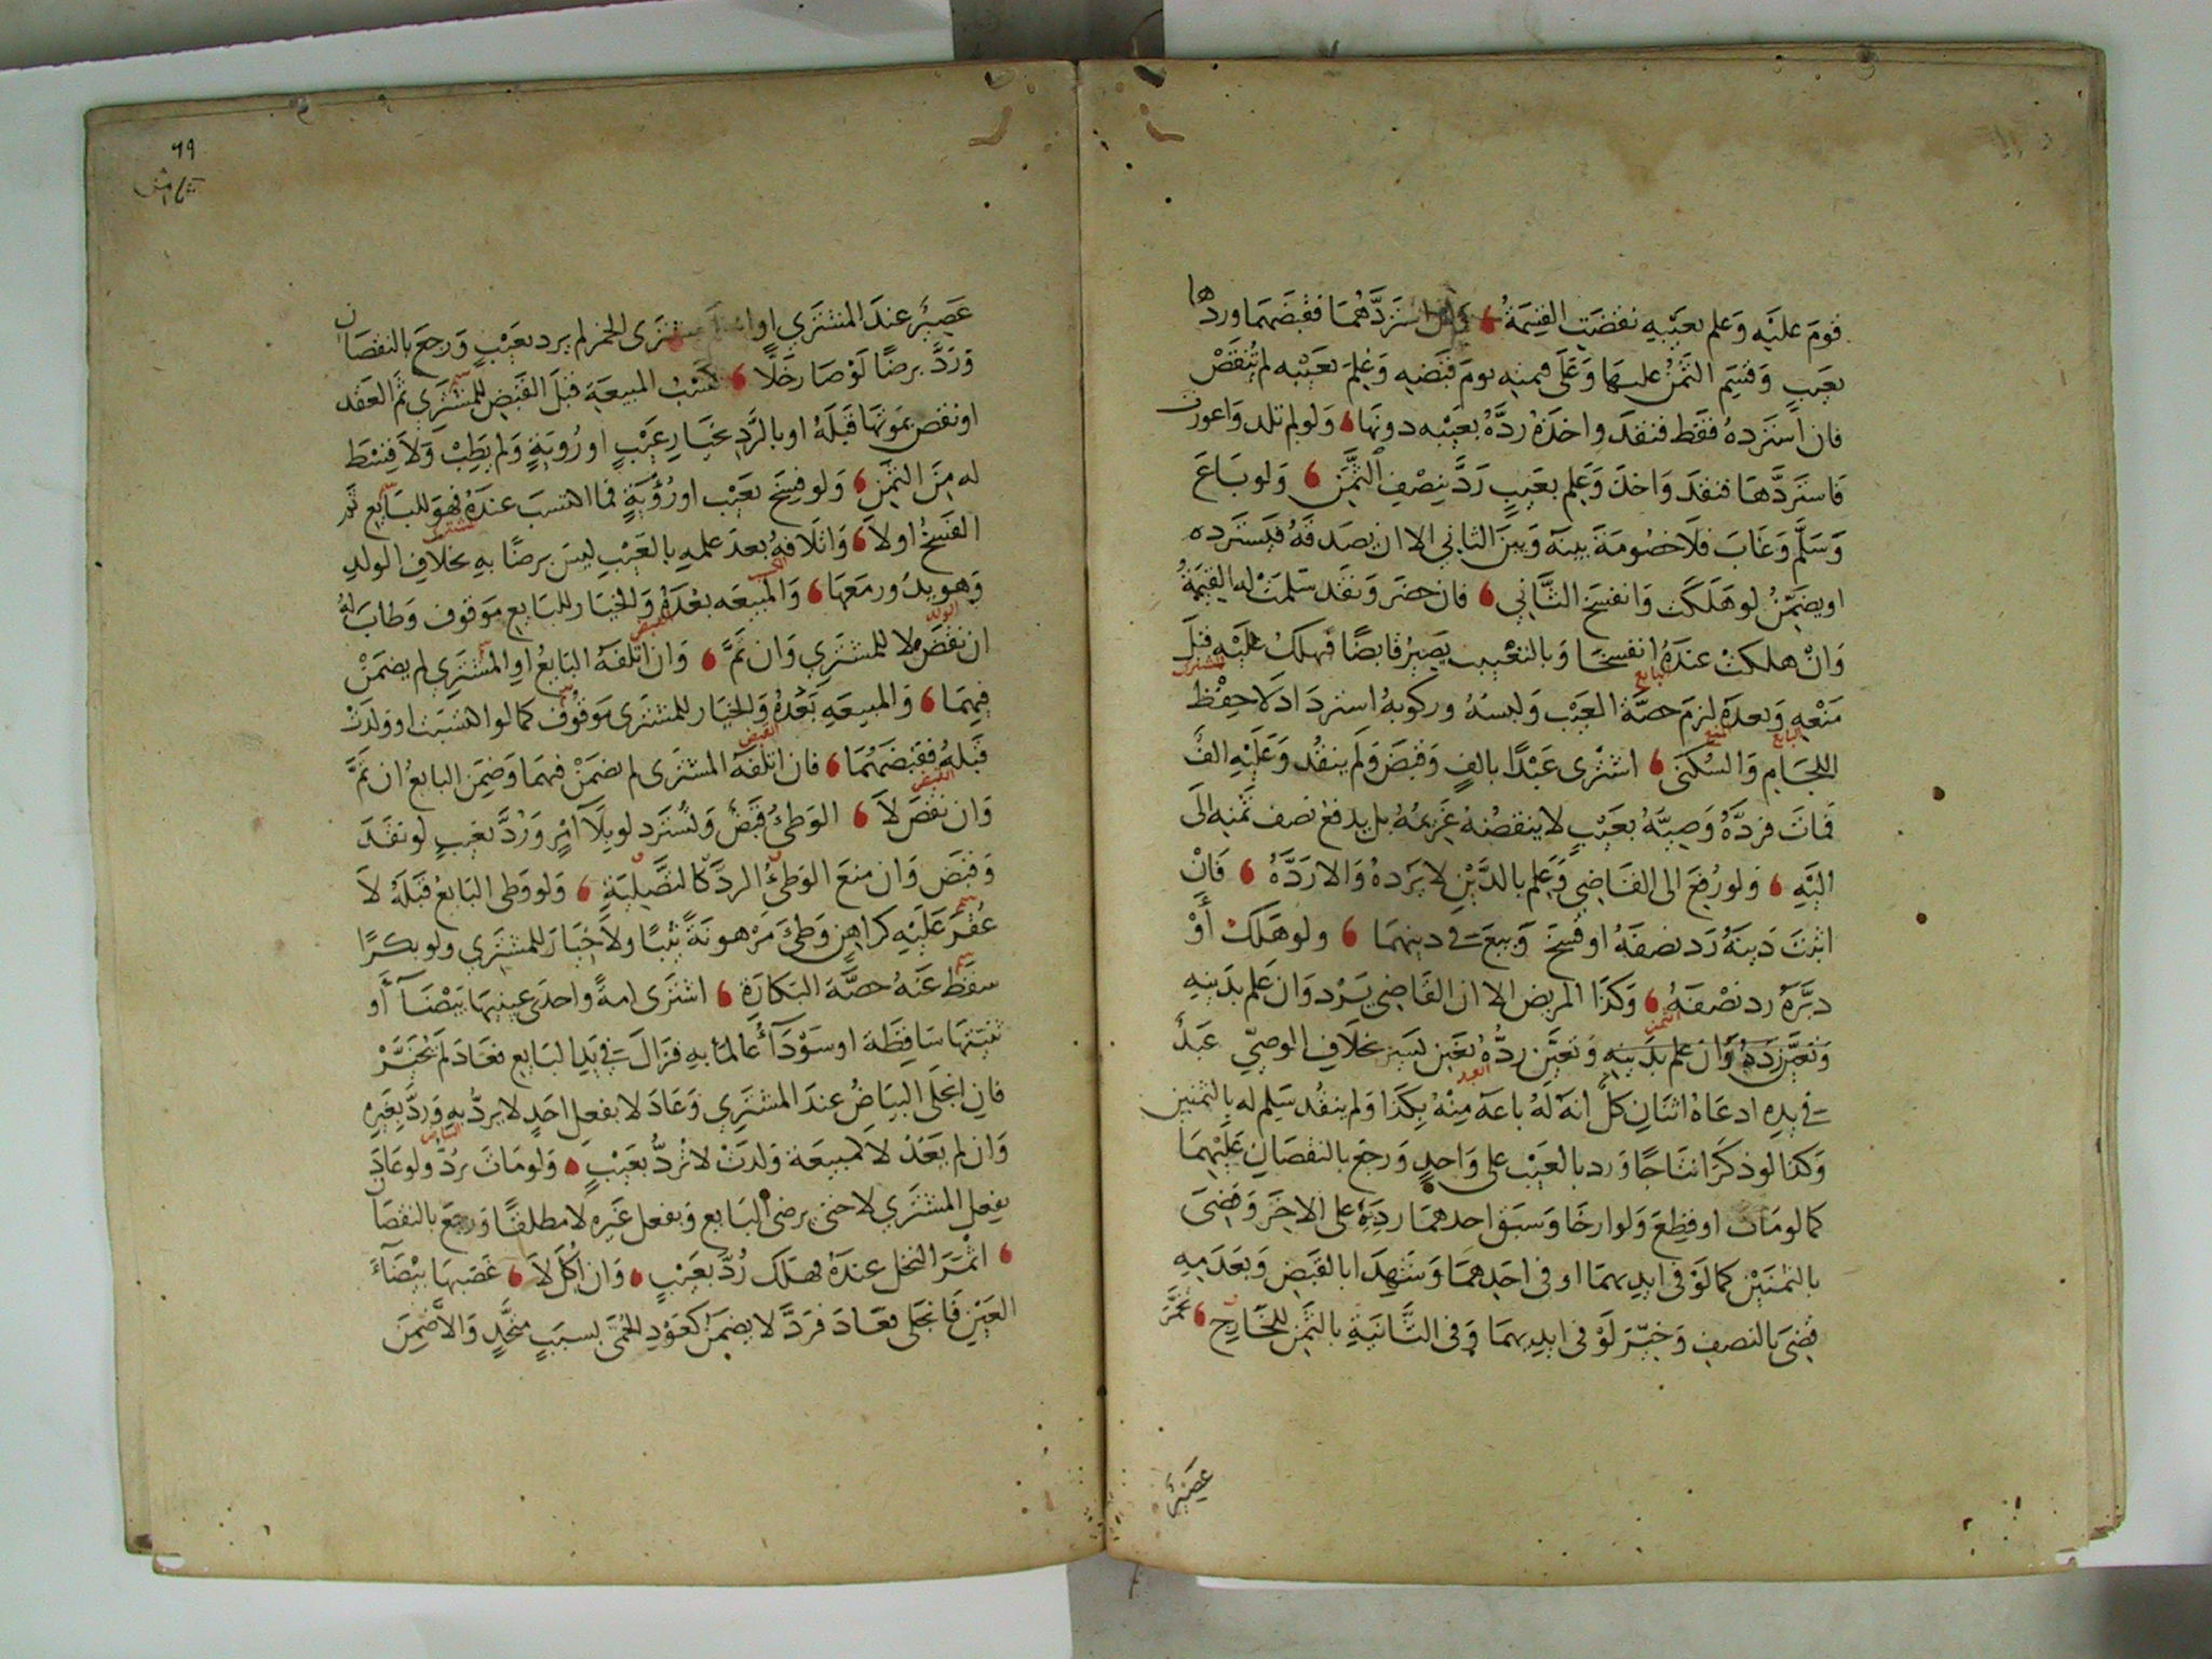 قومَ عليَه وَعلم بعيبه نقضَتِ القِيمَةُ فإن استردَّهُمَا فقبضَهما وردها
بعَيبٍ وَقسِم الثمنُ عليها وَعَلَى قيمتِه يومَ قبَضِه وَعُلِمَ بعَيْبِه لم تُنقَضْ
فان استردهُ فقط فنقدَ واخذهُ ردَّهُ بعَيْبه دونهَا وَلو لم تلد وَاعورت
فاستردَّهَا فنقدَ وَاخذ وَعَلِم بعَيبٍ رَدَّ بنِصْفِ الثَّمَنِ وَلو بَاعَ
وَسَلَّم وَغابَ فلَا خصُومَةَ بينهَ وَبينَ الثاني الا ان يصَدقهُ فيَستَرده
او يضَمِّنُ لو هَلَكَت وَانفسَخَ الثَّاني فان حضرَ وَنقدَ سَلمَتْ له القيمَةُ
وَانْ هلكتْ عندَهُ انفسخا وَبالتعْييب يصِيرُ قابضًا فهلكُ عليْهِ قبلَ
مَنْعِهِ وَبعدَهُ لزمَ حصَّةُ العَيْب وَلبسهُ وركوبُه استردَاد لَا حفْظ
اللجَامِ وَالسُكنى اشترى عَبْدًا بالفٍ وَقبضَ وَلم ينقُد وَعَليْهِ الفٌ
فماتَ فردَّهُ وَصِيّهُ بعَيْبٍ لا ينقضُهُ غَريمُهُ بل يدفعُ نصف ثمنِه الَى
اليْهِ وَلو رُفعَ الى القاضِي وَعَلم بالدَّيْنِ لا يَردهُ وَالا رَدَّهُ فَانْ
اثبتَ دَينَهُ رَد نصفَهُ او فُسِخَ وَبيعَ في دينهمَا ولو هَلكَ أوْ
دبَّرَهُ رد نصْفَهُ وَكذا المريض الا ان القاضِي يَرُد وَان عَلم بدَينِهِ
وَتعيَّنَ ردهُ وَان علم بدَينِه وَتعيَّن ردُّهُ بغَبن يَسير بخلَافِ الوصِيّ عَبدٌ
في يدِه ادعَاهُ اثنانِ كلٌّ انه لهُ باعَه مِنْهُ بكذَا وَلم ينقُد سَلم له بالثمنَين
وَكذا لو ذكرَا نتاجًا وَرد بالعَيْب على وَاحدٍ وَرجعَ بالنقصَانِ عَليْهمَا
كما لومَاتَ او قطِعَ وَلو ارخَا وَسبقَ احدهمَا رددهُ على الاخرَ وَقضِىَ
بالثمنَيْن كما لوْ في ايديهمَا او في احَدِهمَا وَشهِدَا بالقبضِ وَبعَدَمِه
قضِىَ بالنصفِ وَخيّرَ لوْ في ايديهمَا وَفي الثَّانيَةِ بالثمَنِ للخَارِجِ تخمَّرَ
عَصيرٌ
٦٩
عَصيرٌ عندَ المشتري او مشترى الخمر لم يرد بعَيْبٍ وَرجعَ بالنقصَان
وَرَدَّ برضًا لوْ صَار خَلًّا كسْبُ المبيعَةِ قبلَ القبضِ للمشتَري ثمَّ العَقد
او نقض بموتهَا قبلهُ او بالرَّدِ بخيَارِ عَيْبٍ او رُويَةٍ وَلم يطِبْ وَلَا قِسْط
له مِنَ الثمَنِ وَلو فسِخَ بعَيْب اورُؤيَةٍ فما اكتسَبَ عندَهُ فهوَ للبَايعِ تمَّ
الفَسْخُ اولَا وَاتلَافهُ بعدَ علمِهِ بالعَيْبِ ليسَ برضًا بهِ بخلَافِ الولدِ
وَهو يدُورمَعهَا وَالمبيعَه بعْدَهُ وَالخيَار للبَايعِ مَوقوف وَطابَ لهُ
ان نقضَ لا للمشترَي وَان تمَّ وَان اتلفَهُ البَايعُ او المشتَرِي لم يضمَنْ
فيهمَا وَالمبيعَةِ بَعْدَهُ وَالخيَار للمشترَى موقُوف كما لو اكتسَبت او ولدَتْ
قبْلهُ فقبَضَهُمَا فان اتلفَهُ المشترَى لم يضمَنْ فيهمَا وَضمِنَ البايعُ ان تمَّ
وَان نقضَ لَا الوَطئُ قبضٌ وَتُسترَد لو بلَا امرٍ وَرُدَّ بعَيبٍ لو نقدَ
وَقبضَ وَان منعَ الوَطئُ الردَّ كالتَّصْلِيَةِ وَلو وَطى البَايعُ قبْلهُ لَا
عُقرَ عَليْهِ كرَاهِنٍ وَطئَ مَرْهونةً ثيّبًا ولَا خيَارَ للمشتري ولو بكرًا
سقطَ عَنهُ حصَّةُ البَكارَةِ اشترَى امةً واحدَى عينيهَا بَيْضَآ أو
ثنيّتهَا سَاقِطَة او سَوْدَآءُ عالمًا بهِ فزالَ في يَدِ البَايعِ فعَادَ لم يُخَيَّرْ
فان انجلَى البيَاضُ عندَ المشتري وَعَادَ لا بفعلِ احَدٍ لا يردُّ بهِ وَردَّ بغيره
وَان لم يَعُد لا كمبيعَة وَلدَتْ لا تُردُّ بعَيْبٍ وَلو مَاتَ يرُدُّ ولو عَادَ
بفعلِ المشتري لا حتى برضى البَايعِ وَبفعل غَيرِه لا مطلقًا وَرجَعَ بالنقصَا
اثمْرَ النخل عندَهُ فهَلك رُدَّ بعَيْبٍ وَان اكل لَا غصَبهَا بيْضَآءَ
العَيْنِ فَانجلَى فعَادَ فرَدَّ لا يضمَنُ كعَوْدِ الحُمَّى بسبَبٍ متَّحِدٍ وَالا ضَمِنَ